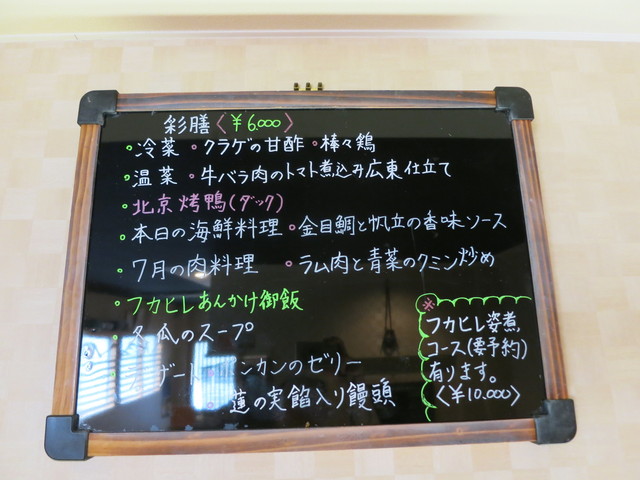 彩膳〈¥6.000〉
冷菜 クラゲの甘酢 棒々鶏
温菜 牛バラ肉のトマト煮込み広東仕立て
北京烤鴨(ダック)
本日の海鮮料理 金目鯛と帆立の香味ソース
7月の肉料理 ラム肉と青菜のクミン炒め
フカヒレあんかけ御飯
冬瓜のスープ
デザート キンカンのゼリー
蓮の実餡入り饅頭
※
フカヒレ姿煮
コース(要予約)
有ります。
〈¥10.000〉